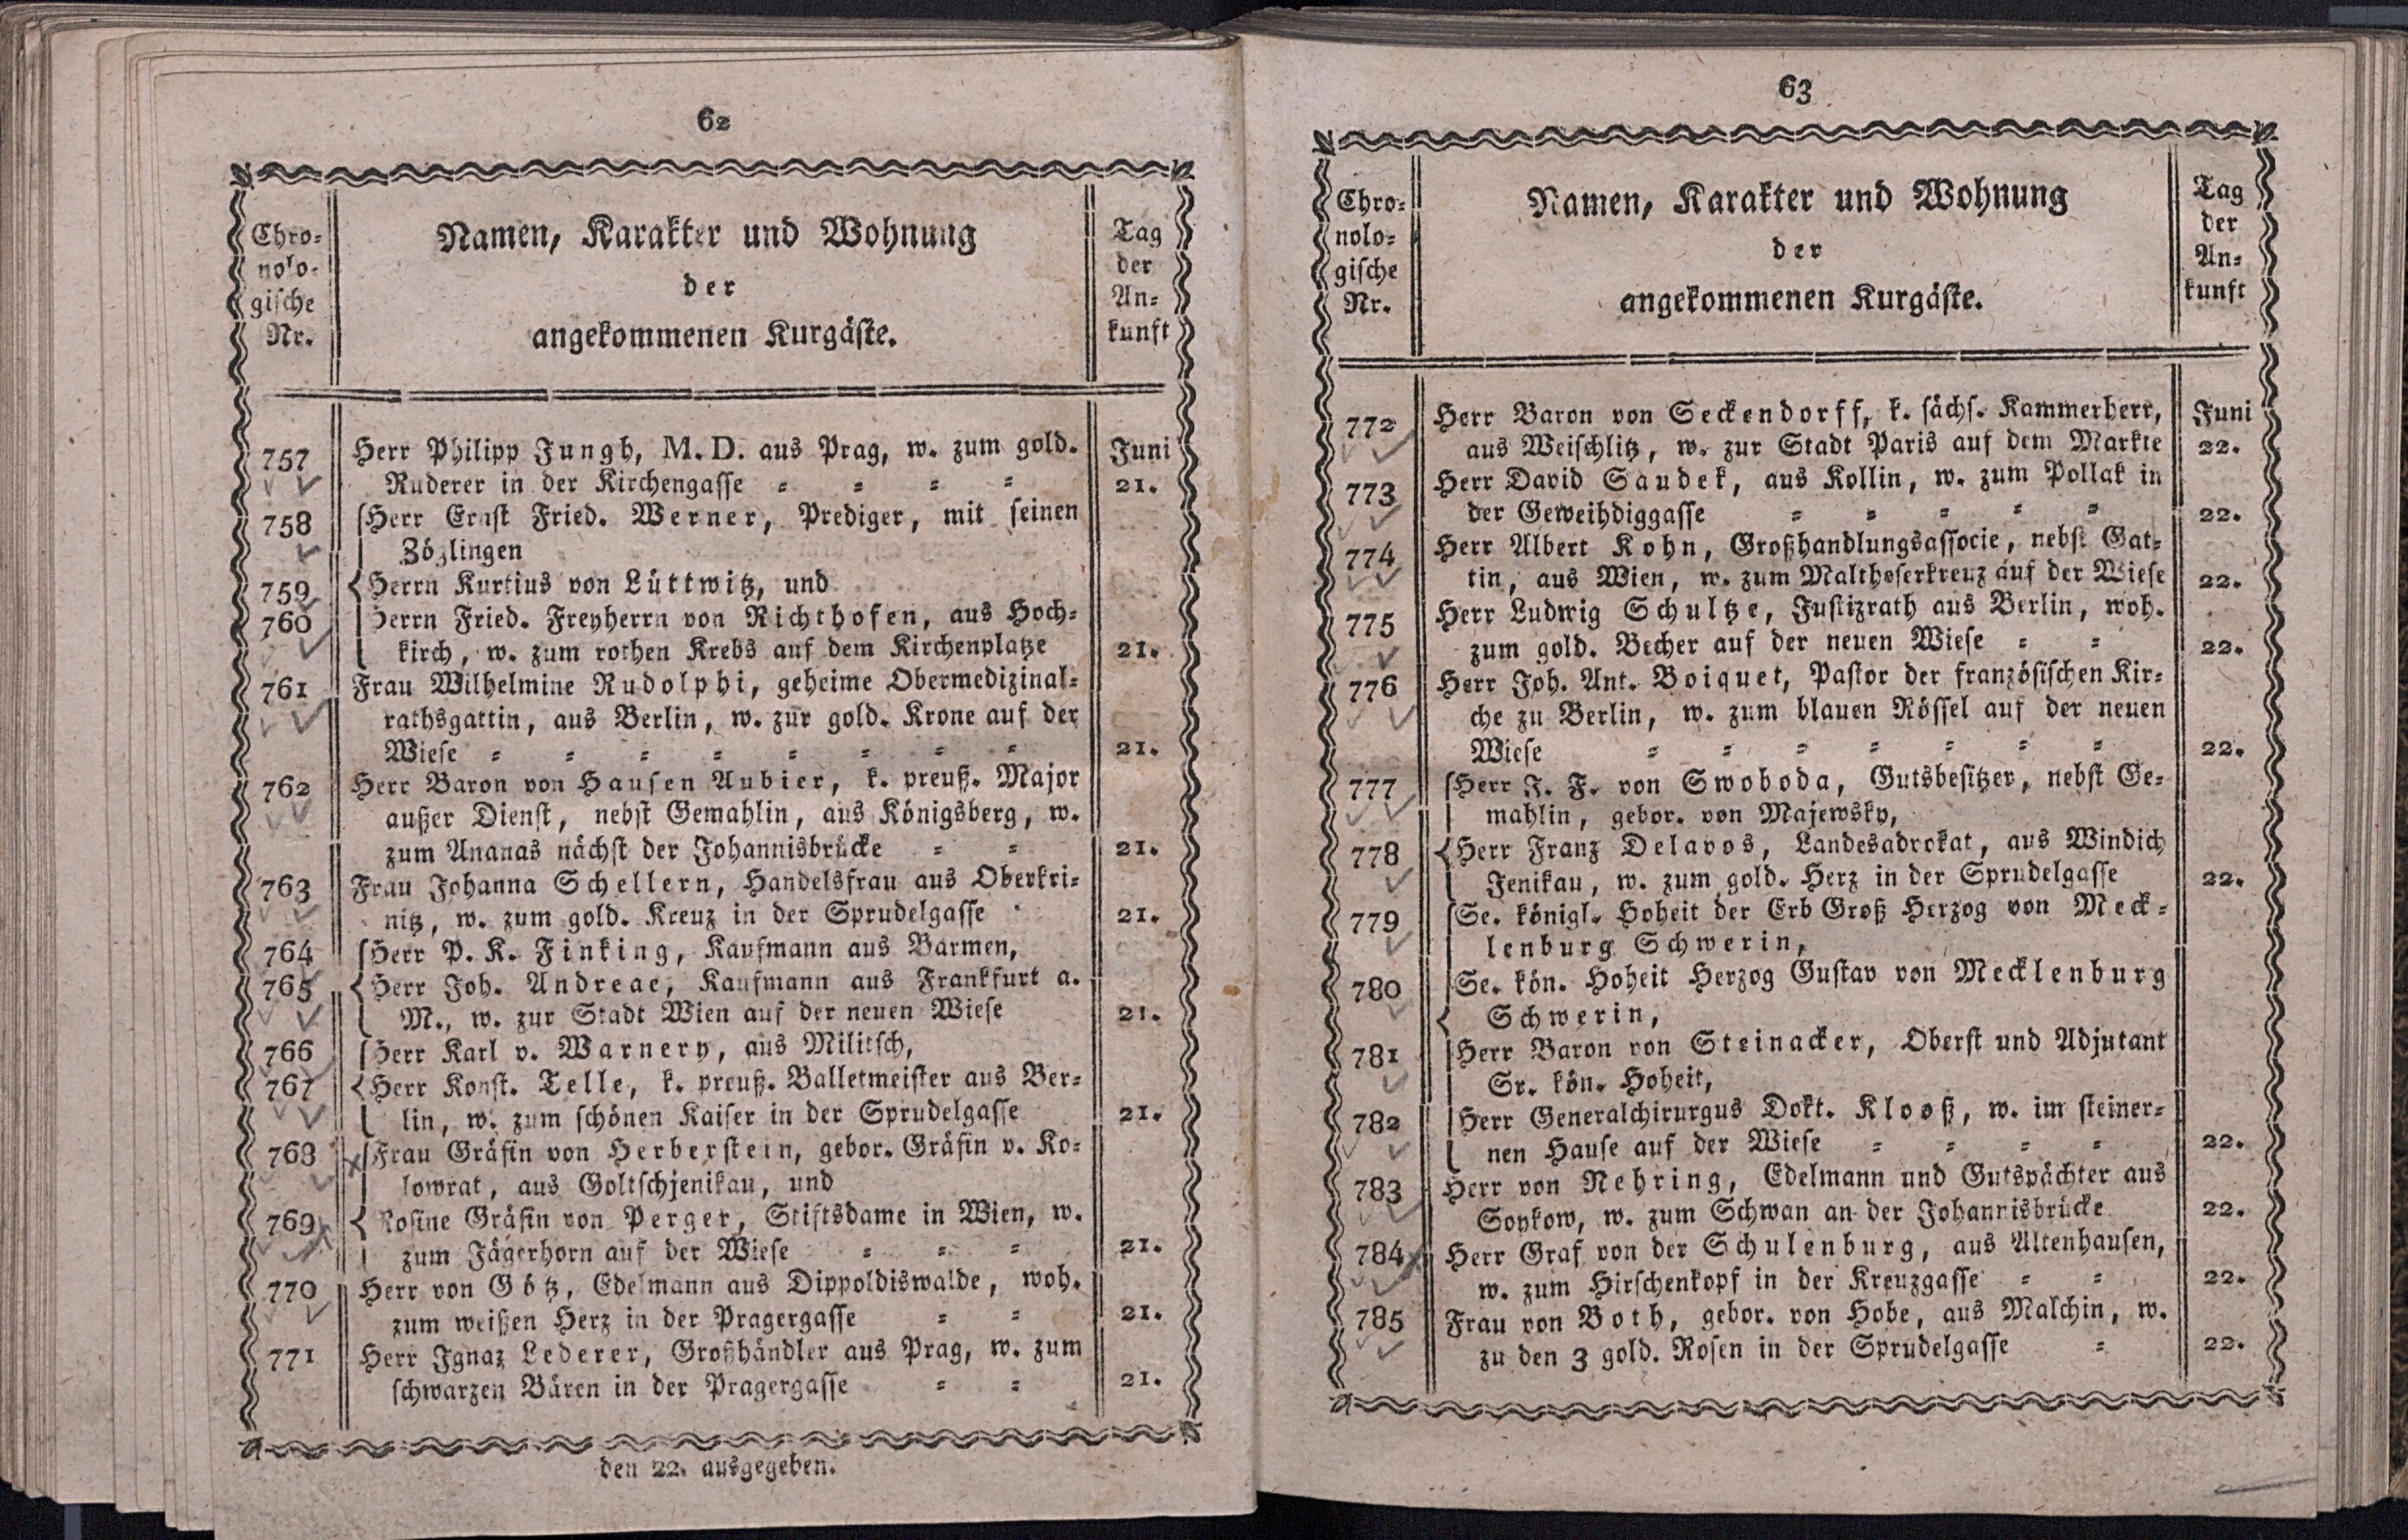 62
Chro=
nolo=
gische
Nr.
Namen, Karakter und Wohnung
der
angekommenen Kurgäste.
Tag
der
An=
kunft
757 Herr Philipp Jungh, M. D. aus Prag, w. zum gold. Juni
Ruderer in der Kirchengasse = = = = 21.
758 Herr Ernst Fried. Werner, Prediger, mit seinen
Zöglingen
759 Herrn Kurtius von Lüttwitz, und
760 Herrn Fried. Freyherrn von Richthofen, aus Hoch=
kirch, w. zum rothen Krebs auf dem Kirchenplatze 21.
761 Frau Wilhelmine Rudolphi, geheime Obermedizinal=
rathsgattin, aus Berlin, w. zur gold. Krone auf der
Wiese = = = = = = = = 21.
762 Herr Baron von Hausen Aubier, k. preuß. Major
außer Dienst, nebst Gemahlin, aus Königsberg, w.
zum Ananas nächst der Johannisbrücke = = 21.
763 Frau Johanna Schellern, Handelsfrau aus Oberkri=
nitz, w. zum gold. Kreuz in der Sprudelgasse 21.
764 Herr P. K. Finking, Kaufmann aus Barmen,
765 Herr Joh. Andreae, Kaufmann aus Frankfurt a.
M., w. zur Stadt Wien auf der neuen Wiese 21.
766 Herr Karl v. Warnery, aus Militsch,
767 Herr Konst. Telle, k. preuß. Balletmeister aus Ber=
lin, w. zum schönen Kaiser in der Sprudelgasse 21.
768 Frau Gräfin von Herberstein, gebor. Gräfin v. Ko=
lowrat, aus Goltschjenikau, und
769 Rosine Gräfin von Perger, Stiftsdame in Wien, w.
zum Jägerhorn auf der Wiese = = = 21.
770 Herr von Götz, Edelmann aus Dippoldiswalde, woh.
zum weißen Herz in der Pragergasse = = 21.
771 Herr Ignaz Lederer, Großhändler aus Prag, w. zum
schwarzen Bären in der Pragergasse = = 21.
den 22. ausgegeben.
63
Chro=
nolo=
gische
Nr.
Namen, Karakter und Wohnung
der
angekommenen Kurgäste.
Tag
der
An=
kunft
772 Herr Baron von Seckendorff, k. sächs. Kammerherr, Juni
aus Weischlitz, w. zur Stadt Paris auf dem Markte 22.
773 Herr David Saudek, aus Kollin, w. zum Pollak in
der Geweihdiggasse = = = = = 22.
774 Herr Albert Kohn, Großhandlungsassocie, nebst Gat=
tin, aus Wien, w. zum Maltheserkreuz auf der Wiese 22.
775 Herr Ludwig Schultze, Justizrath aus Berlin, woh.
zum gold. Becher auf der neuen Wiese = = 22.
776 Herr Joh. Ant. Boiquet, Pastor der französischen Kir=
che zu Berlin, w. zum blauen Rössel auf der neuen
Wiese = = = = = = = 22.
777 Herr J. F. von Swoboda, Gutsbesitzer, nebst Ge=
mahlin, gebor. von Majewsky,
778 Herr Franz Delavos, Landesadvokat, aus Windich
Jenikau, w. zum gold. Herz in der Sprudelgasse 22.
779 Se. königl. Hoheit der Erb Groß Herzog von Meck=
lenburg Schwerin,
780 Se. kön. Hoheit Herzog Gustav von Mecklenburg
Schwerin,
781 Herr Baron von Steinacker, Oberst und Adjutant
Sr. kön. Hoheit,
782 Herr Generalchirurgus Dokt. Klooß, w. im steiner=
nen Hause auf der Wiese = = = = 22.
783 Herr von Nehring, Edelmann und Gutspächter aus
Soykow, w. zum Schwan an der Johannisbrücke 22.
784 Herr Graf von der Schulenburg, aus Altenhausen,
w. zum Hirschenkopf in der Kreuzgasse = = 22.
785 Frau von Both, gebor. von Hobe, aus Malchin, w.
zu den 3 gold. Rosen in der Sprudelgasse = 22.